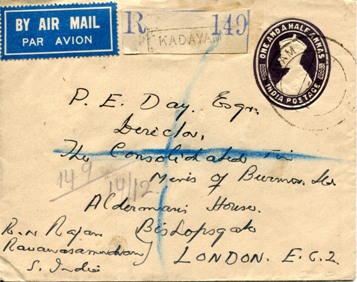 BY AIR MAIL
PAR AVION
R 149
KADAYAM
ONE AND A HALF ANNAS
INDIA POSTAGE
P. E. Day, Esqr.
Director,
The Consolidated Tin
Mines of Burma, Ltd
Aldermans House.
Bishopsgate
LONDON. E.C.2
149
14/12
R. N. Rajan
Ravanasamudram
S. India